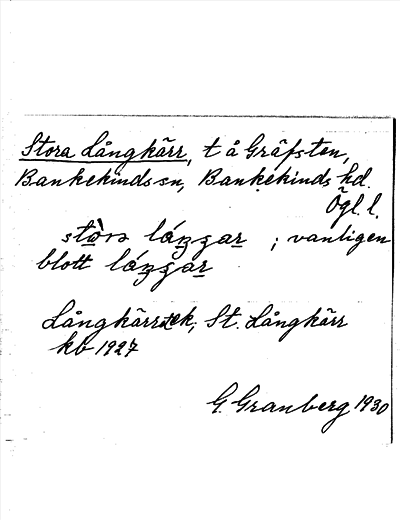 Stora Långkärr, t å Gräfsten,
Bankekinds sn, Bankekinds hd.
Ögl. l.
; vanligen
blott
Långkärr jek, St. Långkärr
kb 1927
G. Granberg 1930